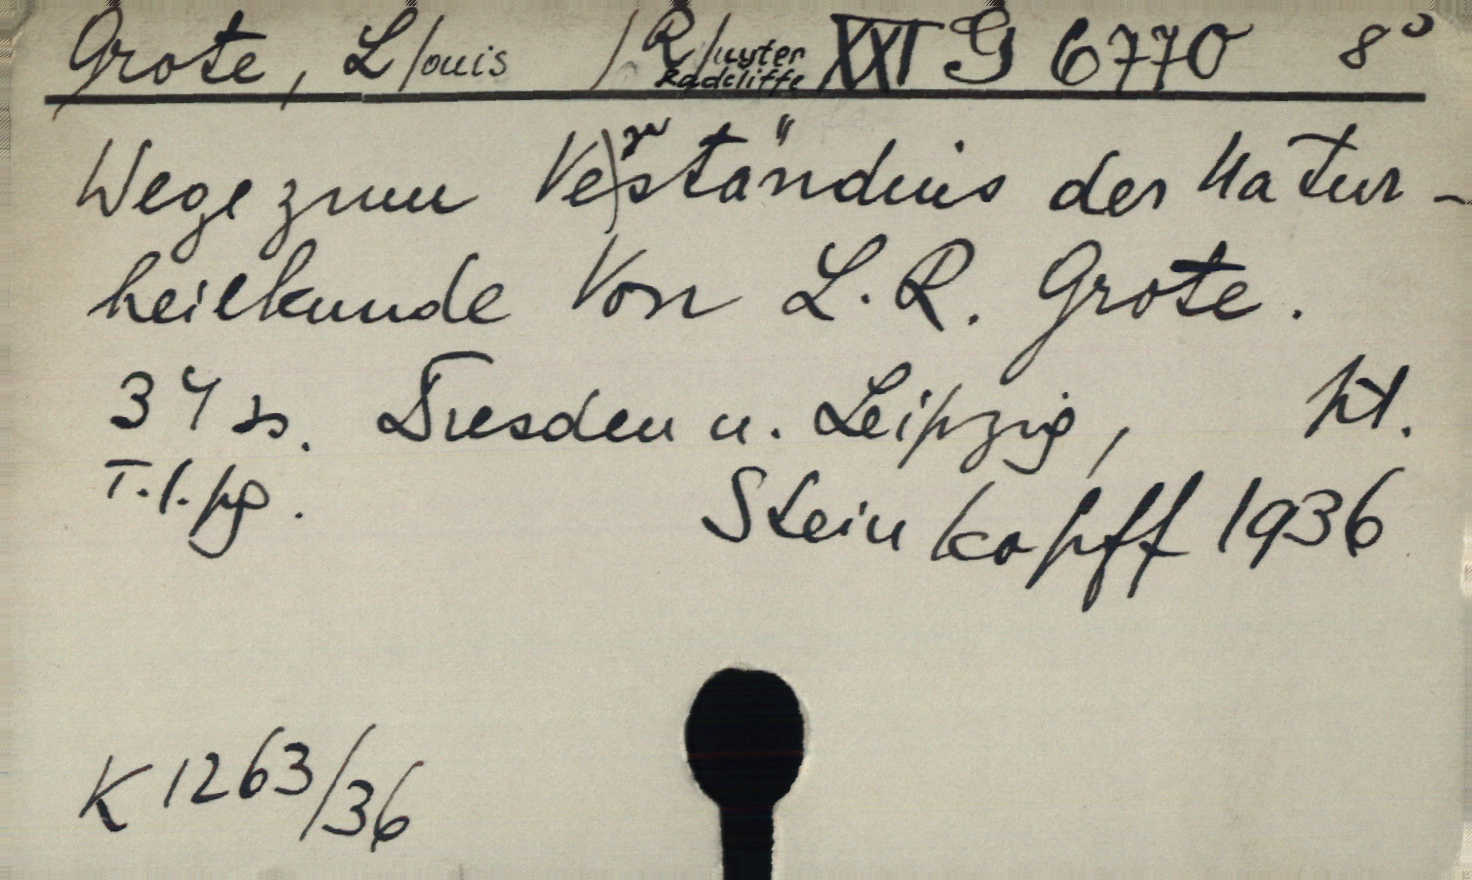 Grote, L/ouis /R/uyter Radcliffe XXI G 6770 8°
Wege zum Verständnis der Natur-
heilkunde Von L. R. Grote.
34 s. Dresden u. Leipzig,
Steinkopff 1936
K 1263/36